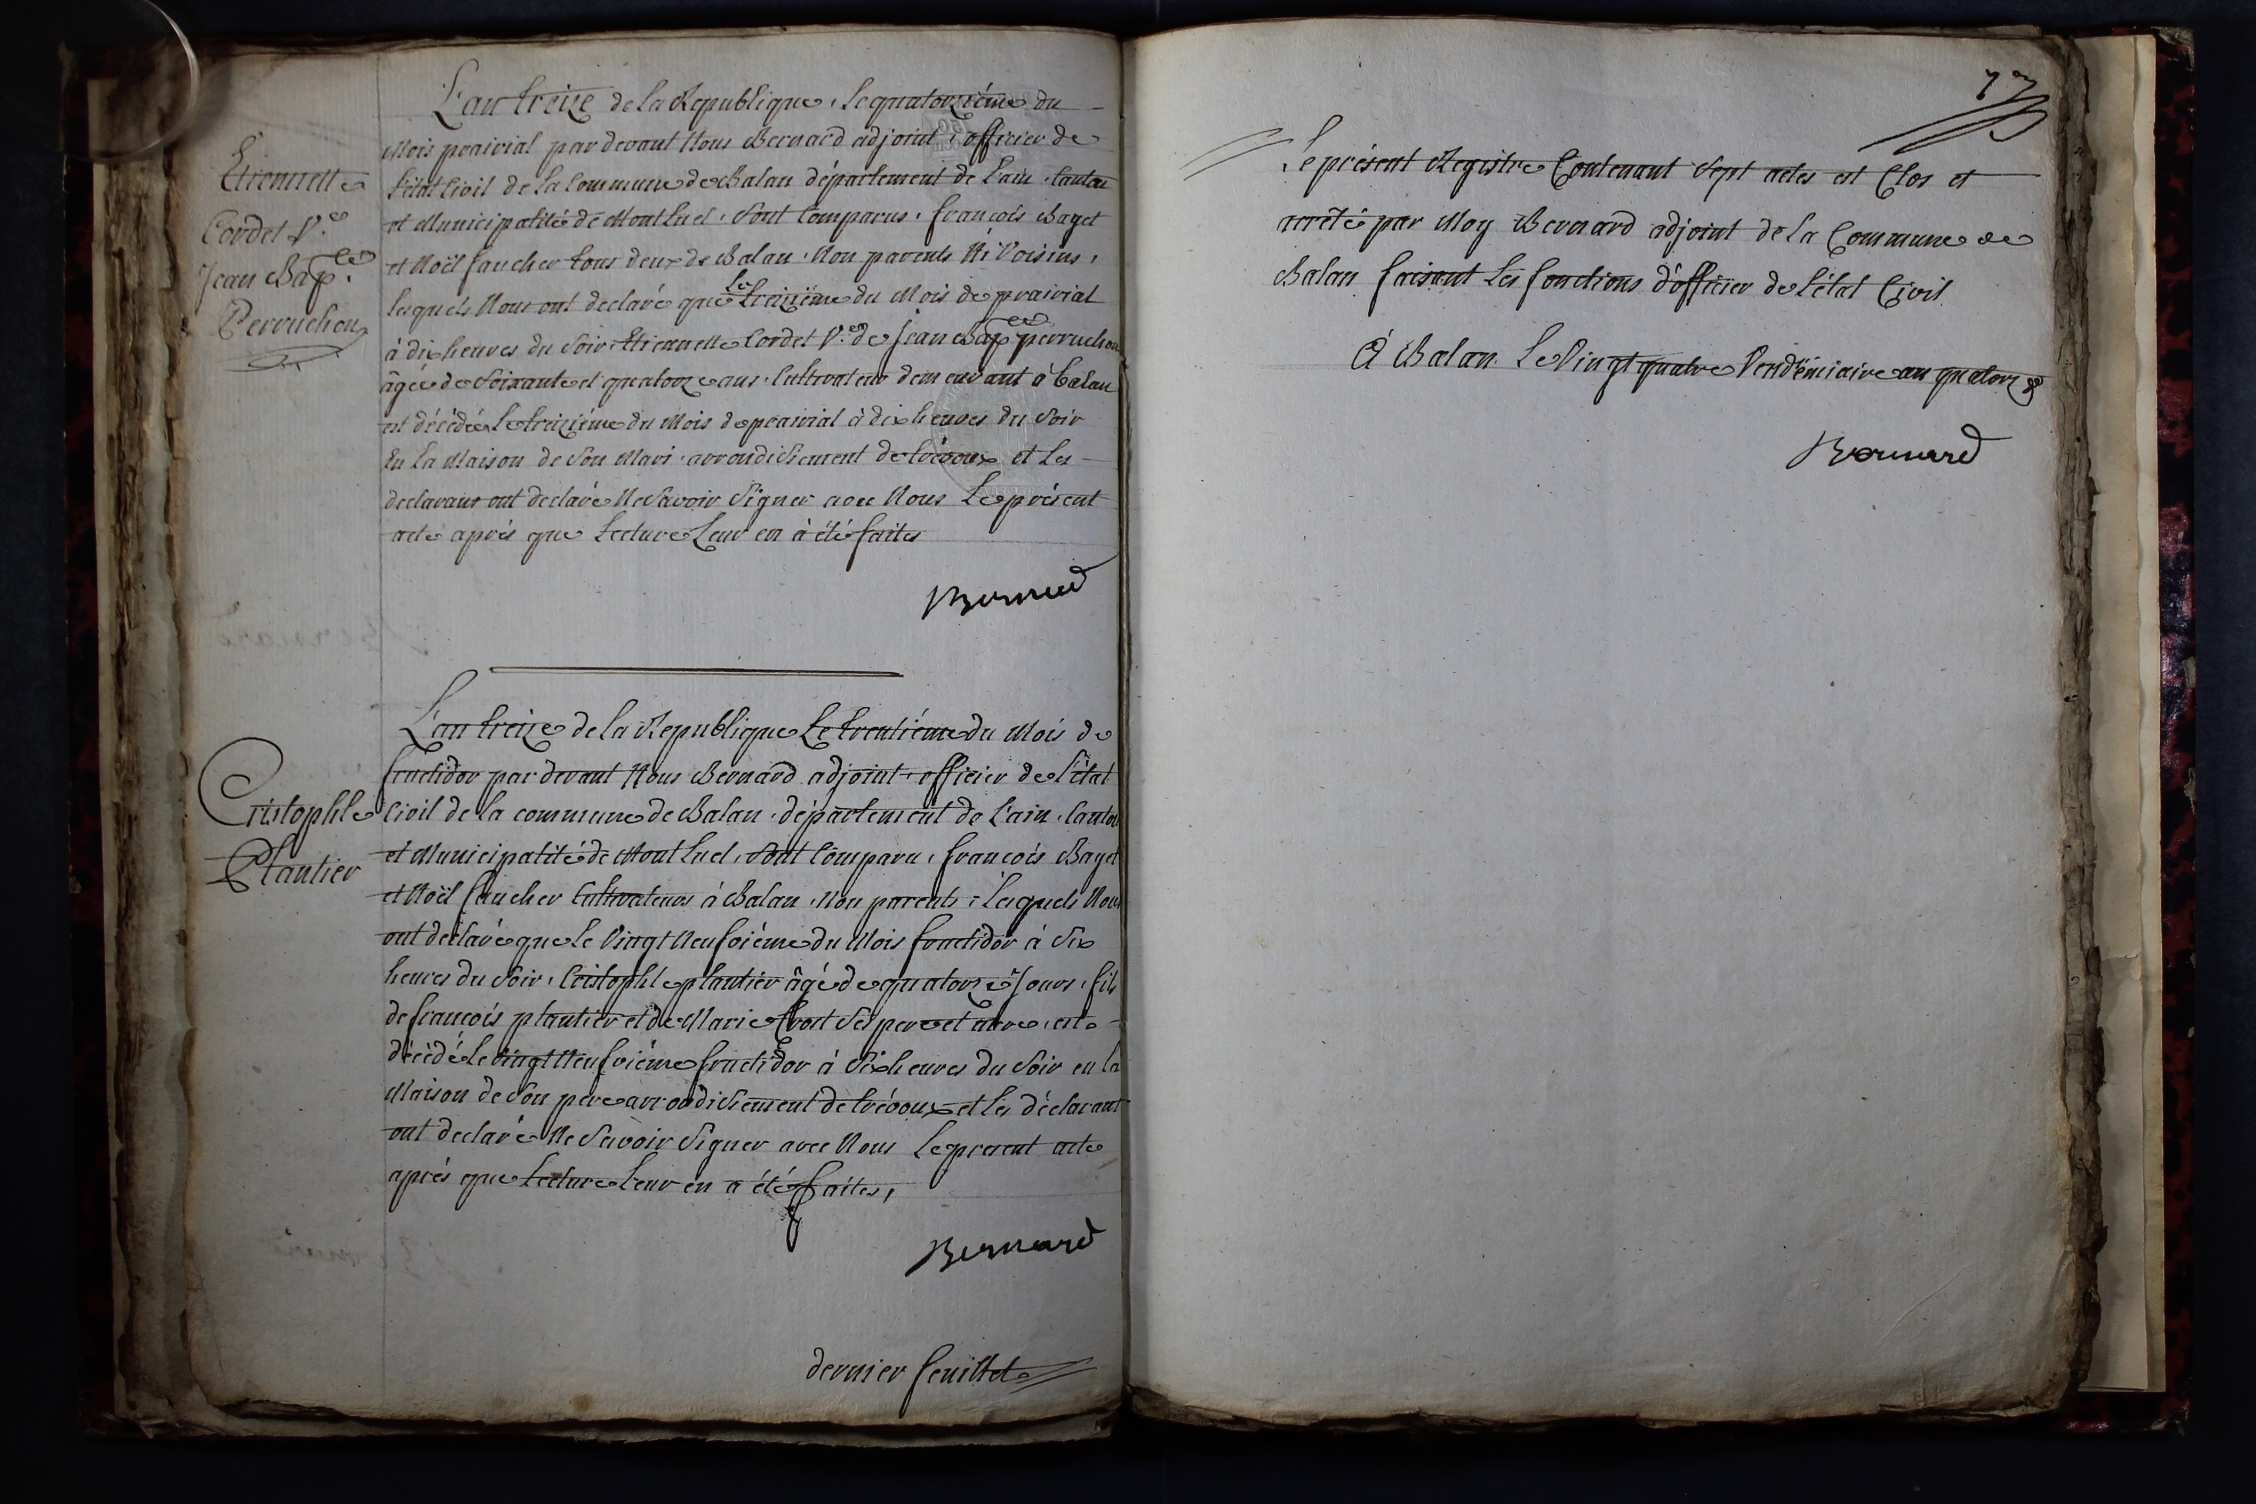 L'an treize de la Republique, le quatorzième du
Mois prairial par devant Nous Bernard adjoint, officier de
l'état Civil de la Commune de Balan département de l'ain, Canton
et Municipalité de Montluel, Sont Comparus, françois Baget
et Noël faucher tous deux de Balan, Non parents Ni Voisins,
lesquels Nous ont declaré que le treizième du Mois de prairial
à dix heures du Soir Etiennette Cordet V.e de Jean Bap.te perruchon
âgée de Soixante et quatorze ans, Cultivateur demeurant à balan
est décédée le treizième du Mois de prairial à dix heures du Soir
En la Maison de Son Mari, arrondissement de trévoux et les
declarans ont declaré Ne Savoir Signer avec Nous le présent
acte après que lecture leur en à été faites
Etiennette
Cordet V.e
Jean Bap.te
Perruchon
Bernard
L'an treize de la Republique le trentième du Mois de
fructidor par devant Nous Bernard adjoint, officier de l'état
Civil de la commune de Balan, département de l'ain, Canton
et Municipalité de Montluel, Sont Comparu, françois Baget
et Noël faucher Cultivateurs à Balan, Non parents, lesquels Nous
ont declaré que le Vingt Neufvième du Mois fructidor à Six
heures du Soir, Cristophle plantier âgé de quatorze Jours, fils
de françois plantier et de Marie Crost Ses pere et mere, est
décédé le vingt Neufvième fructidor à Six heures du Soir en la
Maison de Son pere arrondissement de trévoux et les déclarant
ont declaré Ne Savoir Signer avec Nous le present acte
après que lecture leur en a été faites,
Cristophle
Plantier
Bernard
dernier feuillet
77
Le présent Registre Contenant Sept actes est Clos et
arrêté par Moy Bernard adjoint de la Commune de
Balan faisant les fonctions d'officier de l'état Civil
À Balan le Vingt quatre Vendémiaire an quatorze
Bernard